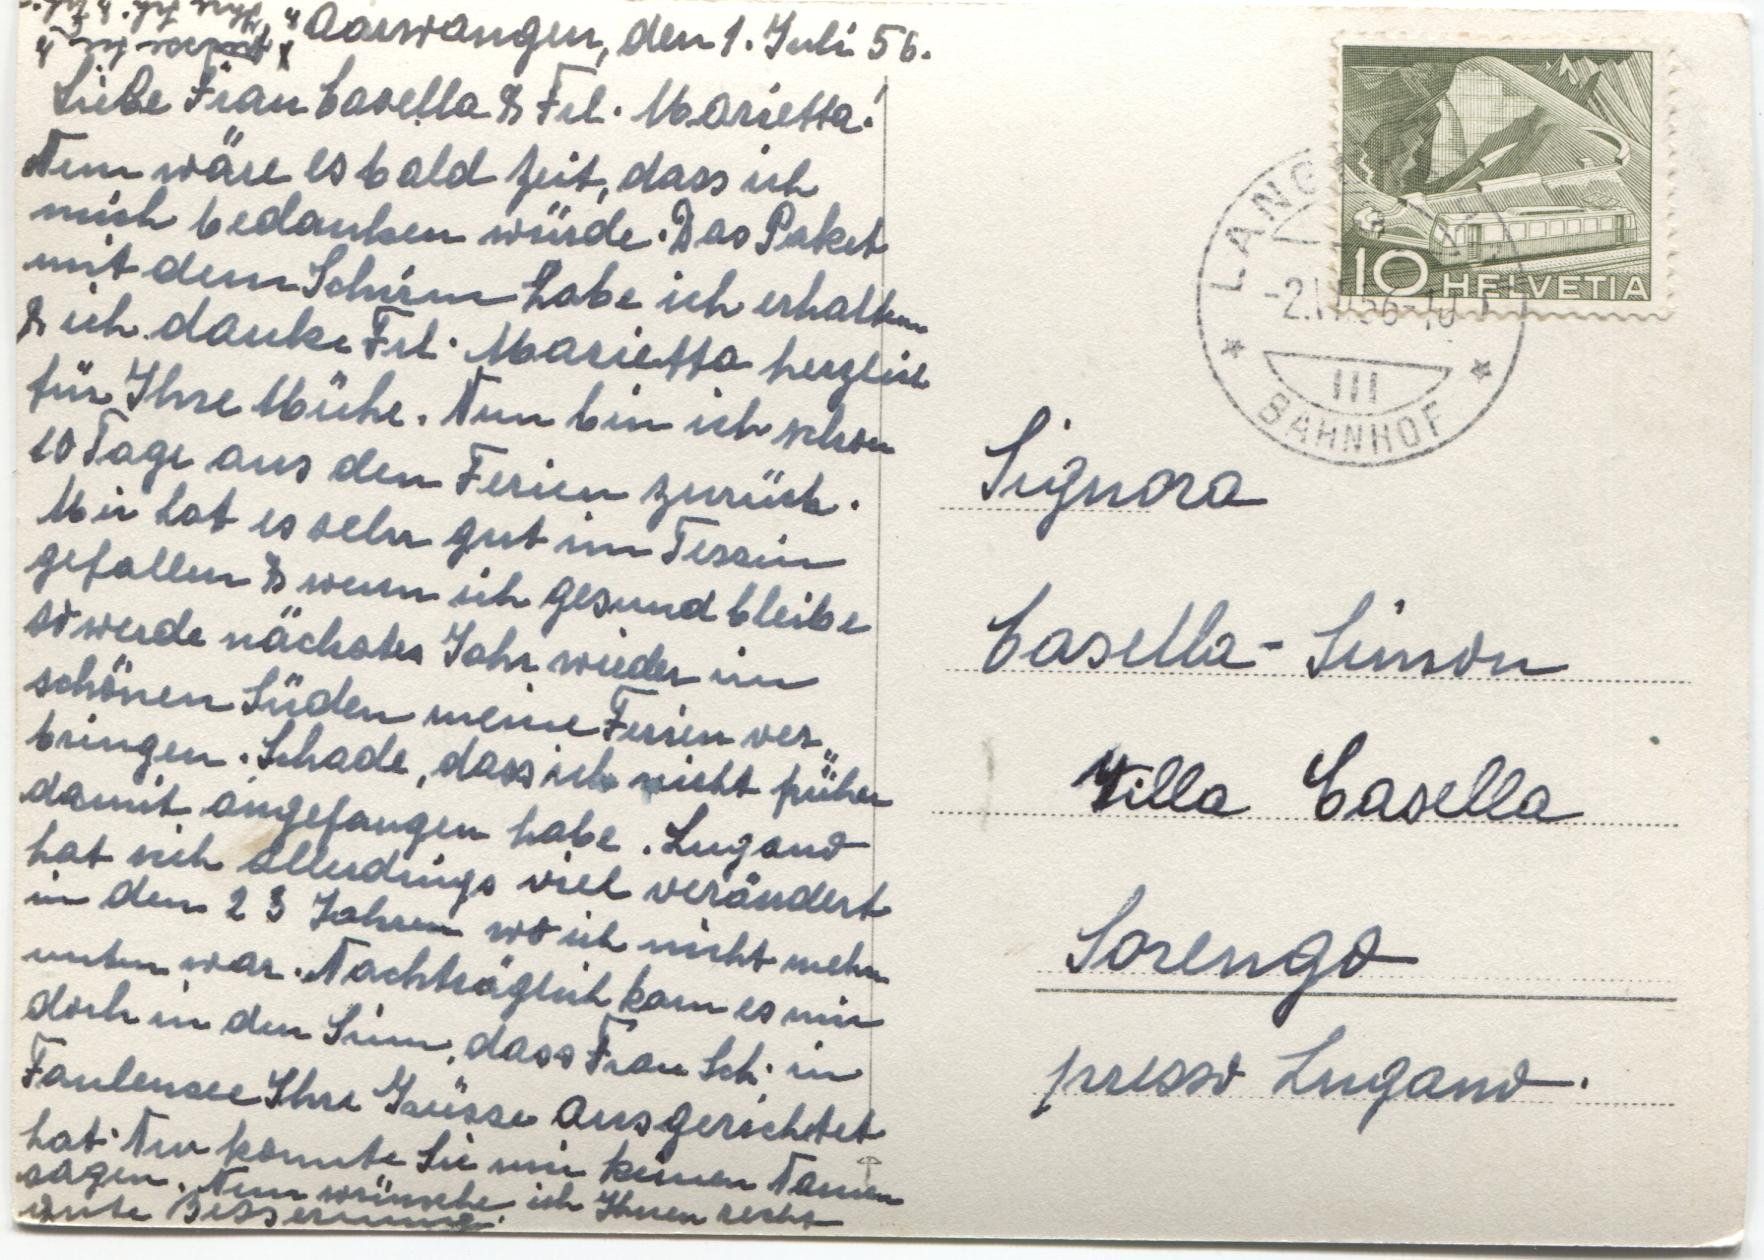 Aarwangen, den 1. Juli 56.
Liebe Frau Casella & Frl. Marietta!
Nun wäre es bald Zeit, dass ich
mich bedanken würde. Das Paket
mit dem Schirm habe ich erhalten
& ich danke Frl. Marietta herzlich
für Ihre Mühe. Nun bin ich schon
10 Tage aus den Ferien zurück.
Mir hat es sehr gut im Tessin
gefallen & wenn ich gesund bleibe
so werde nächstes Jahr wieder im
schönen Süden meine Ferien ver„
bringen. Schade, dass ich nicht früher
damit angefangen habe. Lugano
hat sich allerdings viel verändert
in den 23 Jahren wo ich nicht mehr
unten war. Nachträglich kam es mir
doch in den Sinn, dass Frau Sch. in
Faulensee Ihre Grüsse ausgerichtet
hat. Nur konnte Sie mir keinen Namen
sagen. Nun wünsche ich Ihnen recht
gute Besserung.
10 HELVETIA
BAHNHOF
III
Signora
Casella-Simon
Villa Casella
Sorengo
presso Lugano.